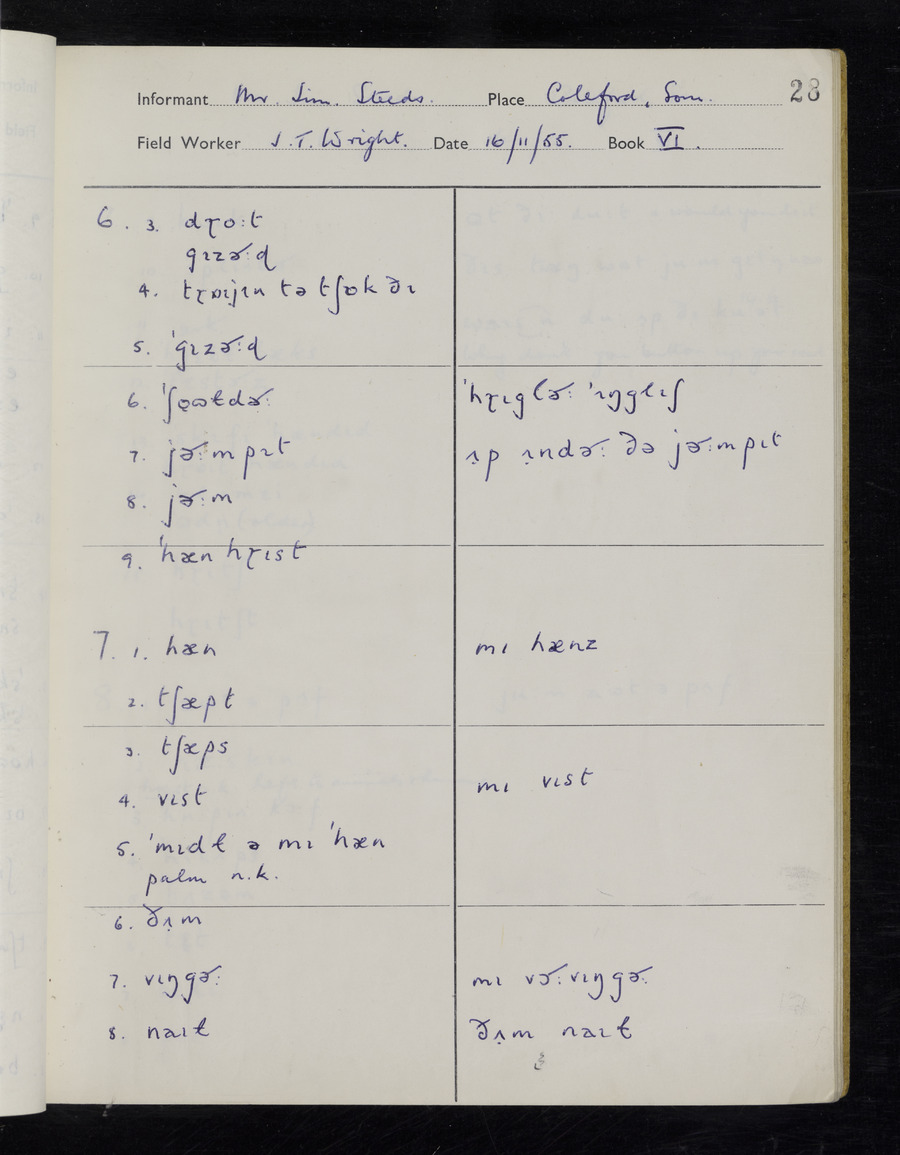 28
Informant Mr Sim. Steeds. Place Coleford, Som.
Field Worker J.T. Wright. Date 16/11/55. Book VI.
6. 3. dɽo:t
gɪzɚ:d
4. tɽɒɪjɪn tə tʃɒk ðɪ
5. ˈgɪzɚ:d
6. ˈʃɔʊɫdɚ: ˈhɽɪgləɚ: ˈɪŋglɪʃ
7. jɚ:mpɪt ʌ̣p ʌ̣ndɚ: ðə jɚ:mpɪt
8. jɚ:m
9. ˈhæn hɽɪst
7. 1. hæn mɪ hænz
2. tʃæpt
3. tʃæps
4. vɪst mɪ vɪst
5. ˈmɪdɫ ə mɪ ˈhæn
palm n.k.
6. ðʌ̣m
7. vɪŋgɚ: mɪ vɚ:vɪŋgɚ:
8. naɪɫ ðʌ̣m naɪɫ